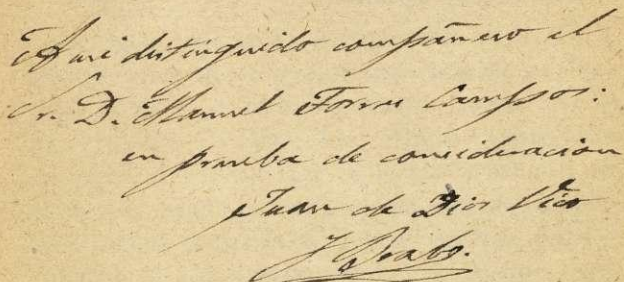 A mi distinguido compañero el
Sr. D. Manuel Torres Campos:
en prueba de consideracion
Juan de Dios Vico
y Brabo.